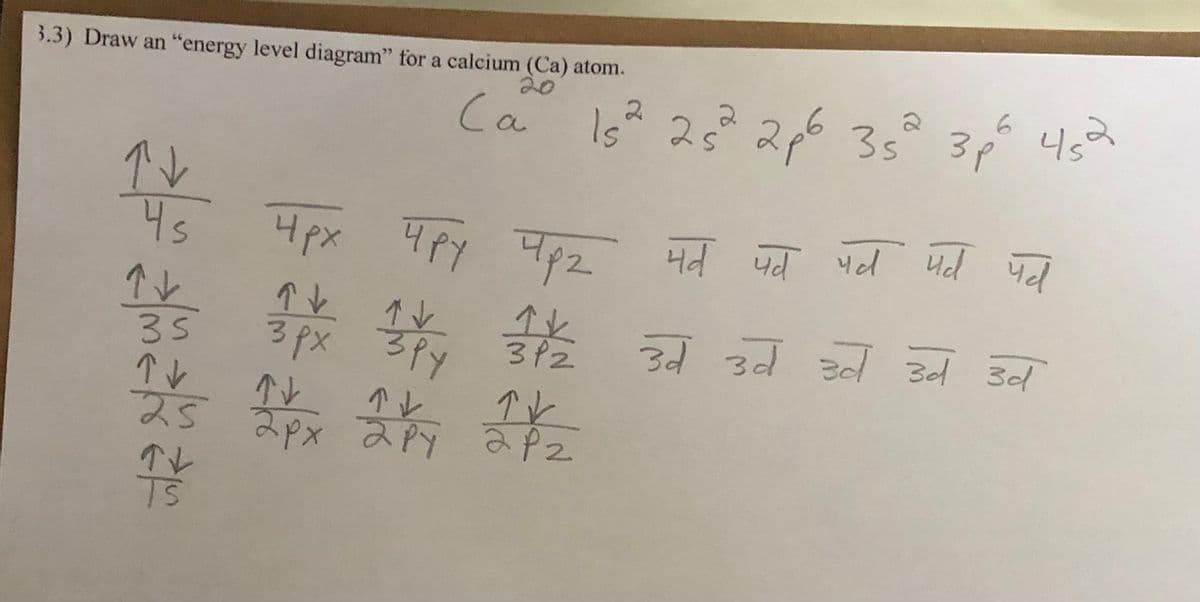 3.3) Draw an “energy level diagram” for a calcium (Ca) atom.
Ca²⁰ 1s² 2s² 2p⁶ 3s² 3p⁶ 4s²
↑↓
4s 4px 4py 4pz 4d 4d 4d 4d 4d
↑↓ ↑↓ ↑↓ ↑↓
3s 3px 3py 3pz 3d 3d 3d 3d 3d
↑↓ ↑↓ ↑↓ ↑↓
2s 2px 2py 2pz
↑↓
1s